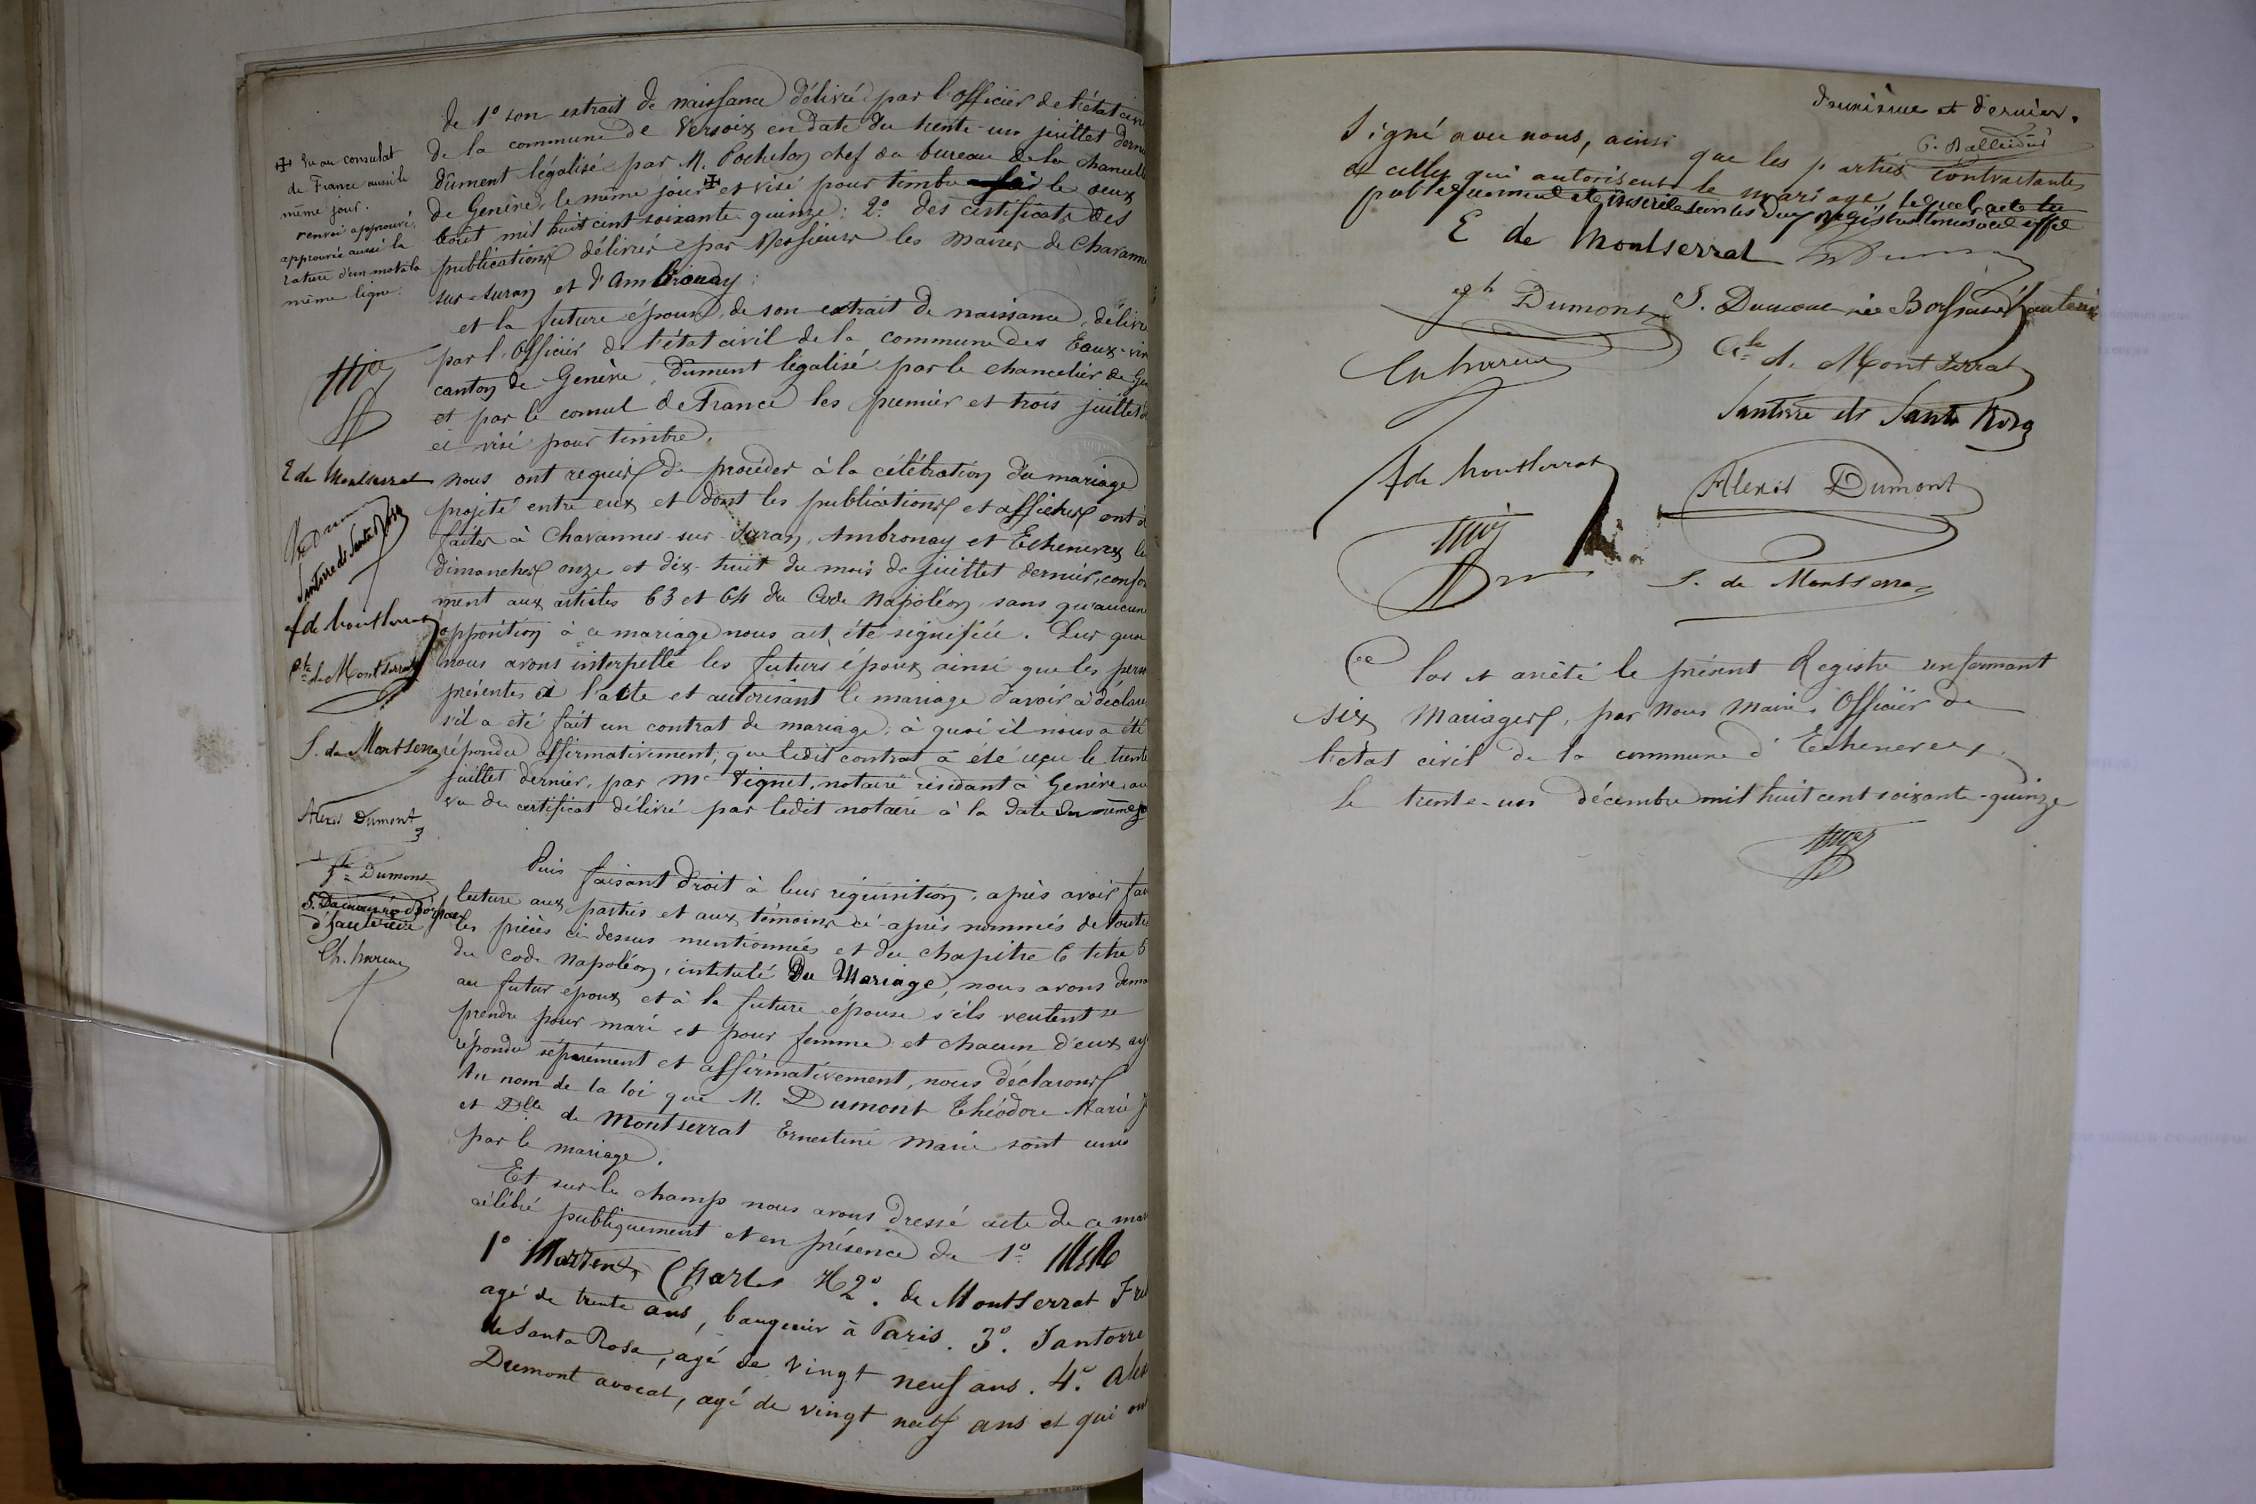 de 1º son extrait de naissance délivré par l'officier de l'état civ
de la commune de Versoix en date du trente-un juillet dern
dûment légalisé par M. Pochelon chef du bureau de la chancell
de Genève le même jour ✠ et visé pour timbre le deux
août mil huit cent soixante quinze; 2º des certificats des
publications délivrés par Messieurs les Maires de Chavanne
sur-Suran et d'Ambronay;
✠ Vu au consulat
de France aussi le
même jour.
renvoi approuvé,
approuvée aussi la
rature d'un mot à la
même ligne.
et la future épouse, de son extrait de naissance, délivr
par l'officier de l'état civil de la commune des Eaux-viv
canton de Genève, dûment légalisé par le chancelier de Ge
et par le consul de France les premier et trois juillet d
et visé pour timbre.
nous ont requis de procéder à la célébration du mariage
projeté entre eux et dont les publications et affiches ont é
faites à Chavannes-sur-Suran, Ambronay et Echenevex le
dimanches onze et dix-huit du mois de juillet dernier, confor
ment aux articles 63 et 64 du Code Napoléon, sans qu'aucune
opposition à ce mariage nous ait été signifiée. Sur quoi
nous avons interpellé les futurs époux ainsi que les pers
présentes à l'acte et autorisant le mariage d'avoir à déclare
s'il a été fait un contrat de mariage; à quoi il nous a été
répondu affirmativement; que ledit contrat a été reçu le trente
juillet dernier, par Me Vignet, notaire résidant à Genève, au
vu du certificat délivré par ledit notaire à la date du même jo
E de Montserrat
Santorre de Santa Rosa
f de Montserrat
Cte de Montserrat
S. de Montserra
Alexis Dumont
Puis faisant droit à leur réquisition; après avoir fai
lecture aux parties et aux témoins ci-après nommés de toute
les pièces ci-dessus mentionnées et du chapitre 6 titre 5
du Code Napoléon, intitulé Du Mariage, nous avons dema
au futur époux et à la future épouse s'ils veulent se
prendre pour mari et pour femme et chacun d'eux ay
répondu séparément et affirmativement, nous déclarons
Au nom de la loi que M. Dumont Théodore Marie J
et Dlle de Montserrat Ernestine Marie sont unis
par le mariage.
Dumont
Et sur-le champ nous avons dressé acte de ce mar
célébré publiquement et en présence de 1º
1º Charles 2º. de Montserrat Fre
agé de trente ans, banquier à Paris. 3º. Santorre
de Santa Rosa, agé de vingt neuf ans. 4º. Alex
Dumont avocat, agé de vingt neuf ans et qui on
deuxième et dernier.
Signé avec nous, ainsi que les parties contractantes
et celles qui autorisent le mariage, lequel acte lu
publiquement et inscrit sur les deux registres
E de Montserrat
Dumont S. Dumont née
Cte de Montserrat
Santorre de Santa Rosa
f de Montserrat
Alexis Dumont
S. de Montserra
Clos et arrêté le présent Registre renfermant
six Mariages, par Nous Maire, Officier de
l'état civil de la commune d'Echenevex,
le trente-un décembre mil huit cent soixante-quinze